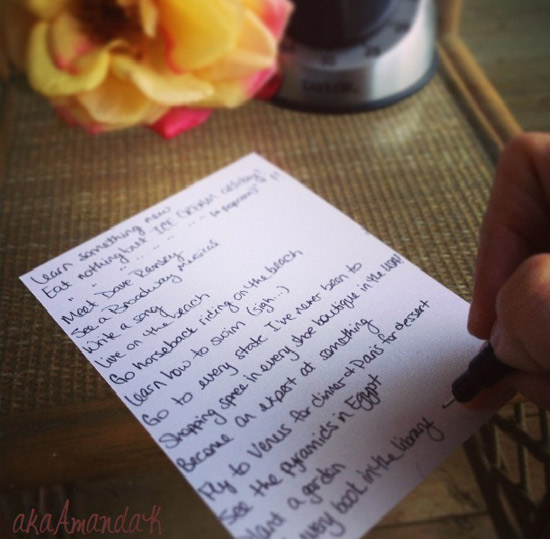 TAYLOR
Learn something new
Eat nothing but ICE CREAM all day!
" " " " " (or popcorn)" "!!
Meet Dave Ramsey
See a Broadway musical
Write a song
Live on the beach
Go horseback riding on the beach
Learn how to swim (sigh...)
Go to every state I've never been to
Shopping spree in every shoe boutique in the world
Become an expert at something
Fly to Venus for dinner & Paris for dessert
See the pyramids in Egypt
Plant a garden
every book in the library
akaAmandaK